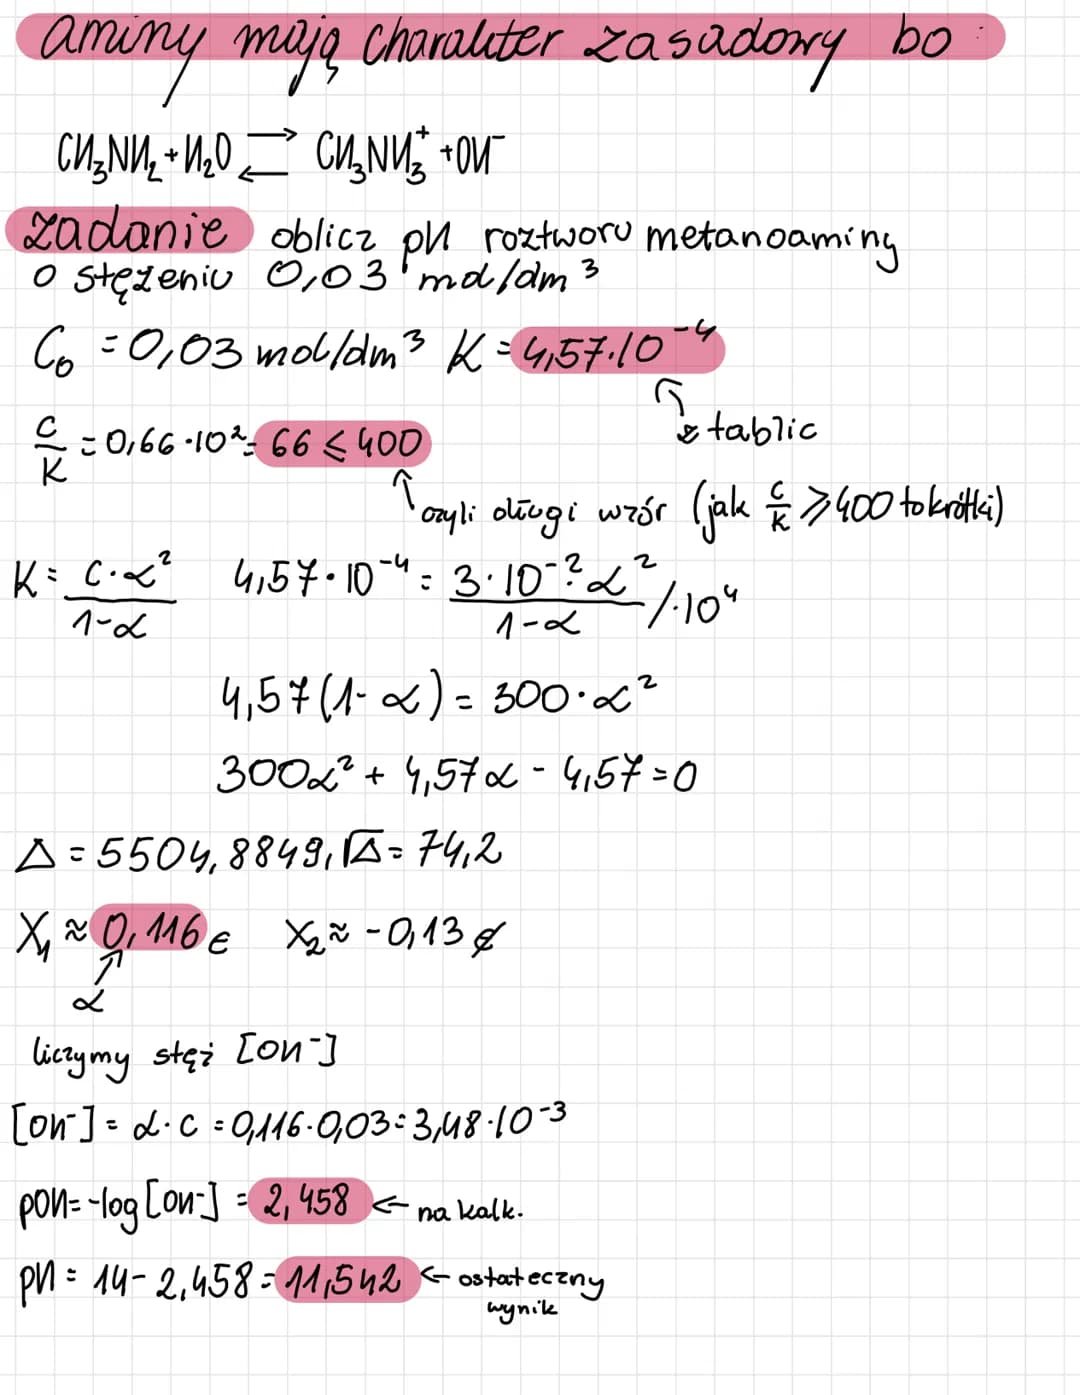 aminy mają charakter zasadowy bo:
CH₃NH₂ + H₂O ⇄ CH₃NH₃⁺ + OH⁻
zadanie oblicz pH roztworu metanoaminy
o stężeniu 0,03 mol/dm³
C₀ = 0,03 mol/dm³ K = 4,57·10⁻⁴
z tablic
c/K = 0,66·10² = 66 ⩽ 400
czyli długi wzór (jak c/K ⩾ 400 to krótki)
K = c·α²/1-α 4,57·10⁻⁴ = 3·10⁻²α²/1-α /·10⁴
4,57(1-α) = 300·α²
300α² + 4,57α - 4,57 = 0
Δ = 5504,8849, √Δ = 74,2
X₁ ≈ 0,116 ∈ X₂ ≈ -0,13 ∉
α
liczymy stęż [OH⁻]
[OH⁻] = α·c = 0,116·0,03 = 3,48·10⁻³
pOH = -log[OH⁻] = 2,458 ← na kalk.
pH = 14 - 2,458 = 11,542 ← ostateczny
wynik